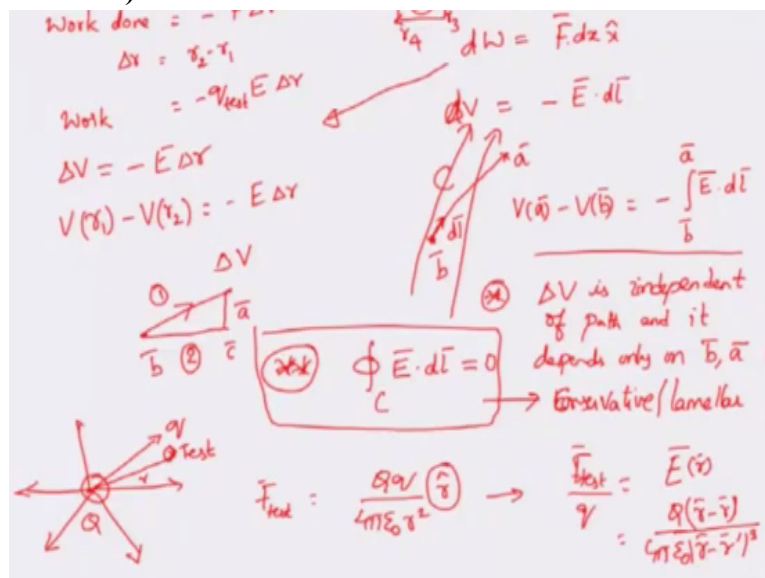 Work done = -
Δr = r₂-r₁
Work = -q_test E Δr
ΔV = - E̅ Δr
V(r₁) - V(r₂) = - E Δr
r₄ r₃
dW = F̅.dx x̂
dV = - E̅ · dl̅
a̅
dl̅
b̅
V(a̅) - V(b̅) = - ∫_b̅^a̅ E̅ · dl̅
ΔV
① a̅
b̅ ② c̅
ΔV is independent
of path and it
depends only on b̅, a̅
∮_C E̅ · dl̅ = 0
→ Conservative/lamellar
q
Test
r
Q
F̅_test = Qq / 4πε₀r² r̂ → F̅_test / q = E̅(r̅)
= Q(r̅-r̅) / 4πε₀|r̅-r̅'|³